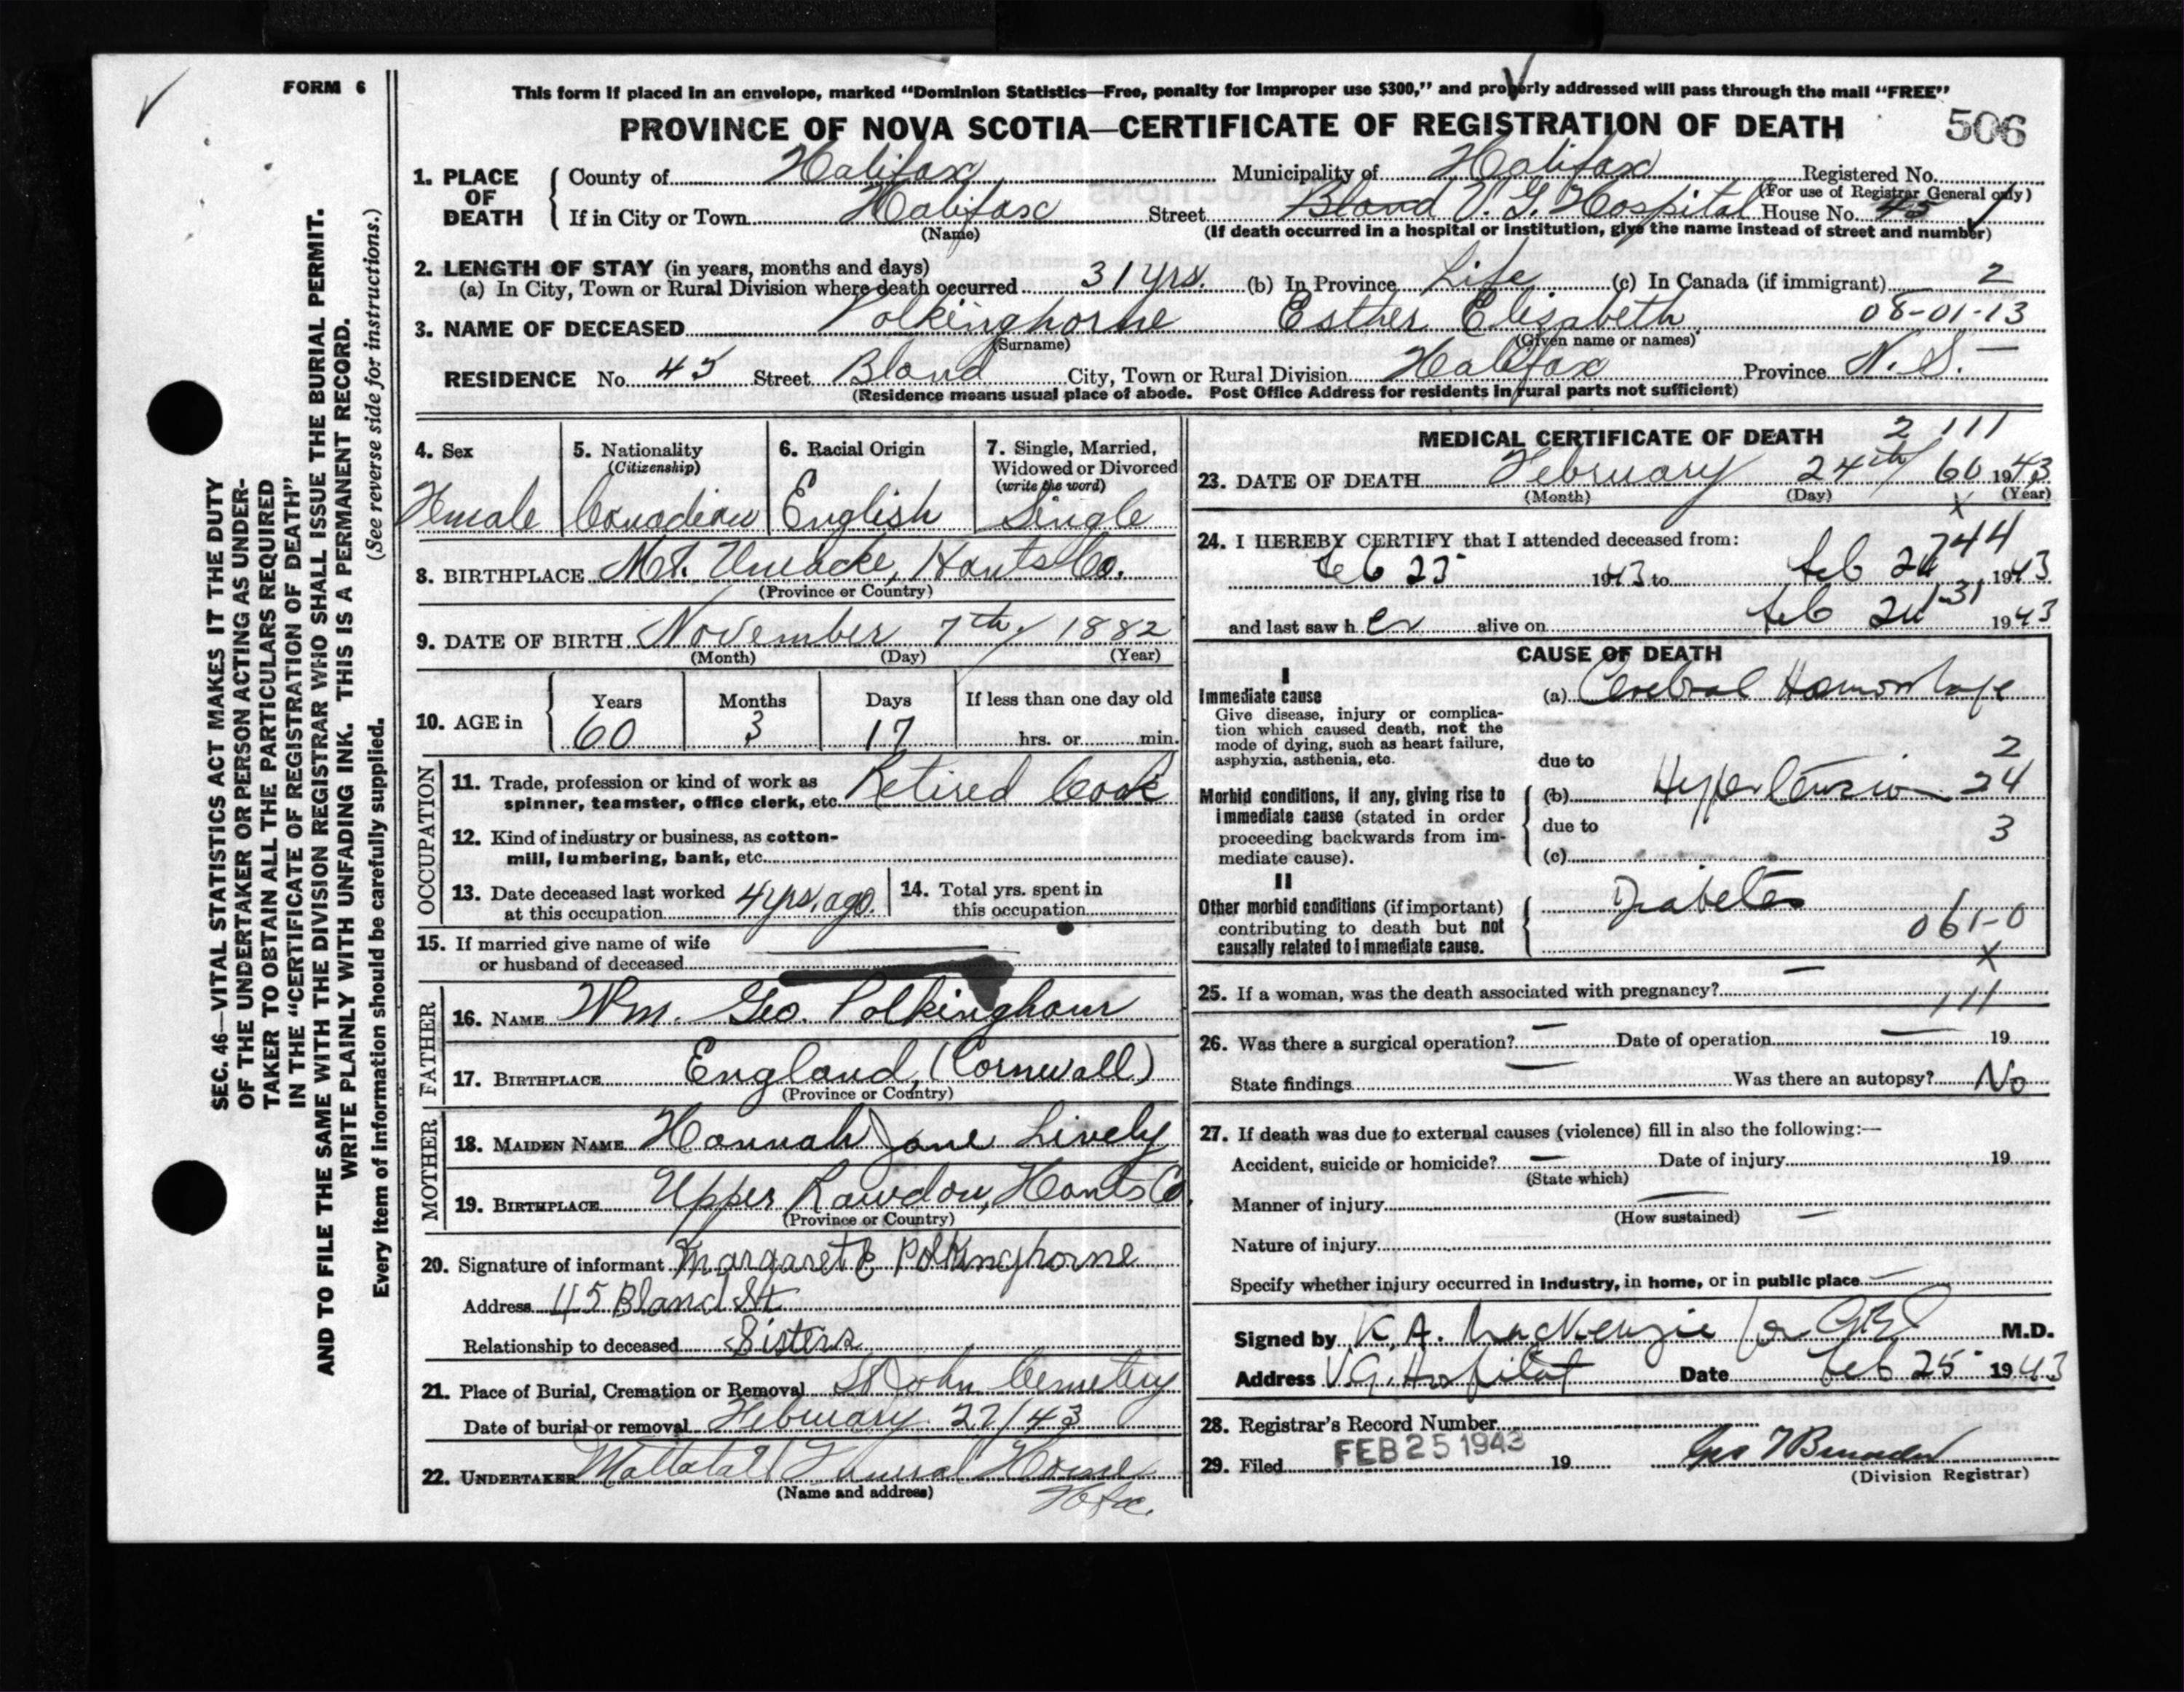 FORM 6
This form if placed in an envelope, marked “Dominion Statistics—Free, penalty for improper use $300,” and properly addressed will pass through the mail “FREE”
PROVINCE OF NOVA SCOTIA—CERTIFICATE OF REGISTRATION OF DEATH 506
1. PLACE OF DEATH
County of Halifax Municipality of Halifax Registered No.
(For use of Registrar General only)
If in City or Town Halifax Street Bland V. G. Hospital House No. 45
(Name) (If death occurred in a hospital or institution, give the name instead of street and number)
2. LENGTH OF STAY (in years, months and days)
(a) In City, Town or Rural Division where death occurred 31 yrs. (b) In Province Life (c) In Canada (if immigrant) 2
3. NAME OF DECEASED Polkinghorne Esther Elizabeth 08-01-13
(Surname) (Given name or names)
RESIDENCE No. 45 Street Bland City, Town or Rural Division Halifax Province N.S.
(Residence means usual place of abode. Post Office Address for residents in rural parts not sufficient)
4. Sex 5. Nationality 6. Racial Origin 7. Single, Married,
(Citizenship) Widowed or Divorced
(write the word)
Female Canadian English Single
8. BIRTHPLACE Mt. Uniacke, Hants Co.
(Province or Country)
9. DATE OF BIRTH November 7th, 1882
(Month) (Day) (Year)
10. AGE in Years Months Days If less than one day old
60 3 17 hrs. or min.
OCCUPATION
11. Trade, profession or kind of work as
spinner, teamster, office clerk, etc. Retired Cook
12. Kind of industry or business, as cotton-
mill, lumbering, bank, etc.
13. Date deceased last worked
at this occupation 4 yrs. ago.
14. Total yrs. spent in
this occupation
15. If married give name of wife
or husband of deceased
FATHER
16. NAME Wm. Geo. Polkinghorn
17. BIRTHPLACE England, (Cornwall)
(Province or Country)
MOTHER
18. MAIDEN NAME Hannah Jane Lively
19. BIRTHPLACE Upper Rawdon, Hants Co.
(Province or Country)
20. Signature of informant Margaret E Polkinghorne
Address 45 Bland St
Relationship to deceased Sisters
21. Place of Burial, Cremation or Removal St John Cemetery
Date of burial or removal February 27/43
22. UNDERTAKER Mattatall Funeral Home
(Name and address) Hfx.
MEDICAL CERTIFICATE OF DEATH 2 111
23. DATE OF DEATH February 24th 60 1943
(Month) (Day) (Year)
X
24. I HEREBY CERTIFY that I attended deceased from:
744
Feb 23 1943 to Feb 24 1943
131
and last saw her alive on Feb 24 1943
CAUSE OF DEATH
I
Immediate cause (a) Cerebral Hemorrhage
Give disease, injury or complica-
tion which caused death, not the
mode of dying, such as heart failure,
asphyxia, asthenia, etc.
due to 2
Morbid conditions, if any, giving rise to (b) Hypertension 24
immediate cause (stated in order
proceeding backwards from im-
mediate cause).
due to 3
(c)
II
Other morbid conditions (if important) Diabetes
contributing to death but not
causally related to immediate cause. 061-0
X
25. If a woman, was the death associated with pregnancy? —
111
26. Was there a surgical operation? — Date of operation — 19
State findings — Was there an autopsy? No
27. If death was due to external causes (violence) fill in also the following:—
Accident, suicide or homicide? — Date of injury 19
(State which)
Manner of injury —
(How sustained)
Nature of injury
Specify whether injury occurred in industry, in home, or in public place —
Signed by K. A. MacKenzie for M.D.
Address V.G. Hospital Date Feb 25 1943
28. Registrar's Record Number
29. Filed FEB 25 1943 19
(Division Registrar)
SEC. 46—VITAL STATISTICS ACT MAKES IT THE DUTY
OF THE UNDERTAKER OR PERSON ACTING AS UNDER-
TAKER TO OBTAIN ALL THE PARTICULARS REQUIRED
IN THE “CERTIFICATE OF REGISTRATION OF DEATH”
AND TO FILE THE SAME WITH THE DIVISION REGISTRAR WHO SHALL ISSUE THE BURIAL PERMIT.
WRITE PLAINLY WITH UNFADING INK. THIS IS A PERMANENT RECORD.
Every item of information should be carefully supplied. (See reverse side for instructions.)